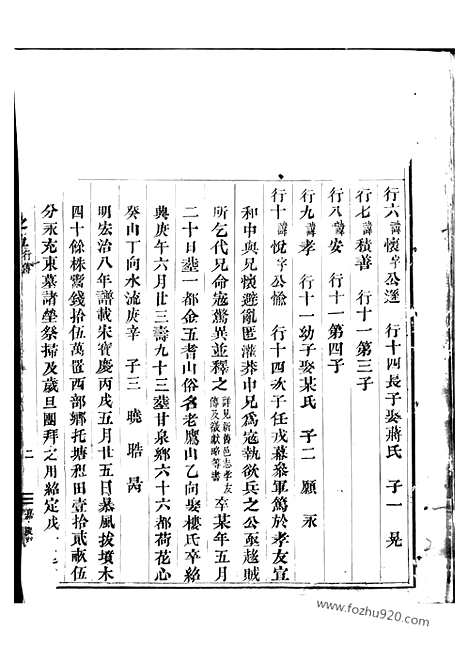 行六諱懷字公遂 行十四長子娶蔣氏 子一 晃
行七諱積善 行十一第三子
行八諱安 行十一第四子
行九諱孝 行十一幼子娶某氏 子二 願 永
行十諱悅字公愉 行十四次子任戎幕祭軍篤於孝友宣
和中與兄懷避亂匿灌莽中兄爲寇執欲兵之公亟趨賊
所乞代兄命寇驚異並釋之詳見新舊邑志孝友傳及徵獻略等書卒某年五月
二十日塟一都金五耆山俗名老鷹山乙向娶樓氏卒紹
典庚午六月廿三壽九十三塟甘泉鄉六十六都荷花心
癸山丁向水流庚辛 子三 曉 晧 昺
明宏治八年譜載朱寶慶丙戌五月廿五日暴風拔墳木
四十餘株鬻錢拾伍萬置西部鄉托塘租田壹拾貳畝伍
分永充東墓諸塋祭掃及歲旦團拜之用紹定戊
行傳
二
www.fozhu920.com